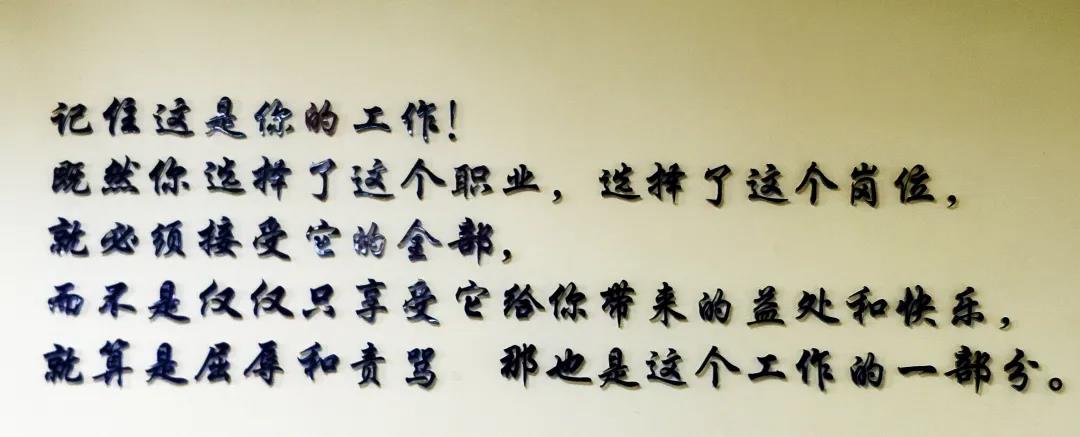 记住这是你的工作！
既然你选择了这个职业，选择了这个岗位，
就必须接受它的全部，
而不是仅仅只享受它给你带来的益处和快乐，
就算是屈辱和责骂 那也是这个工作的一部分。